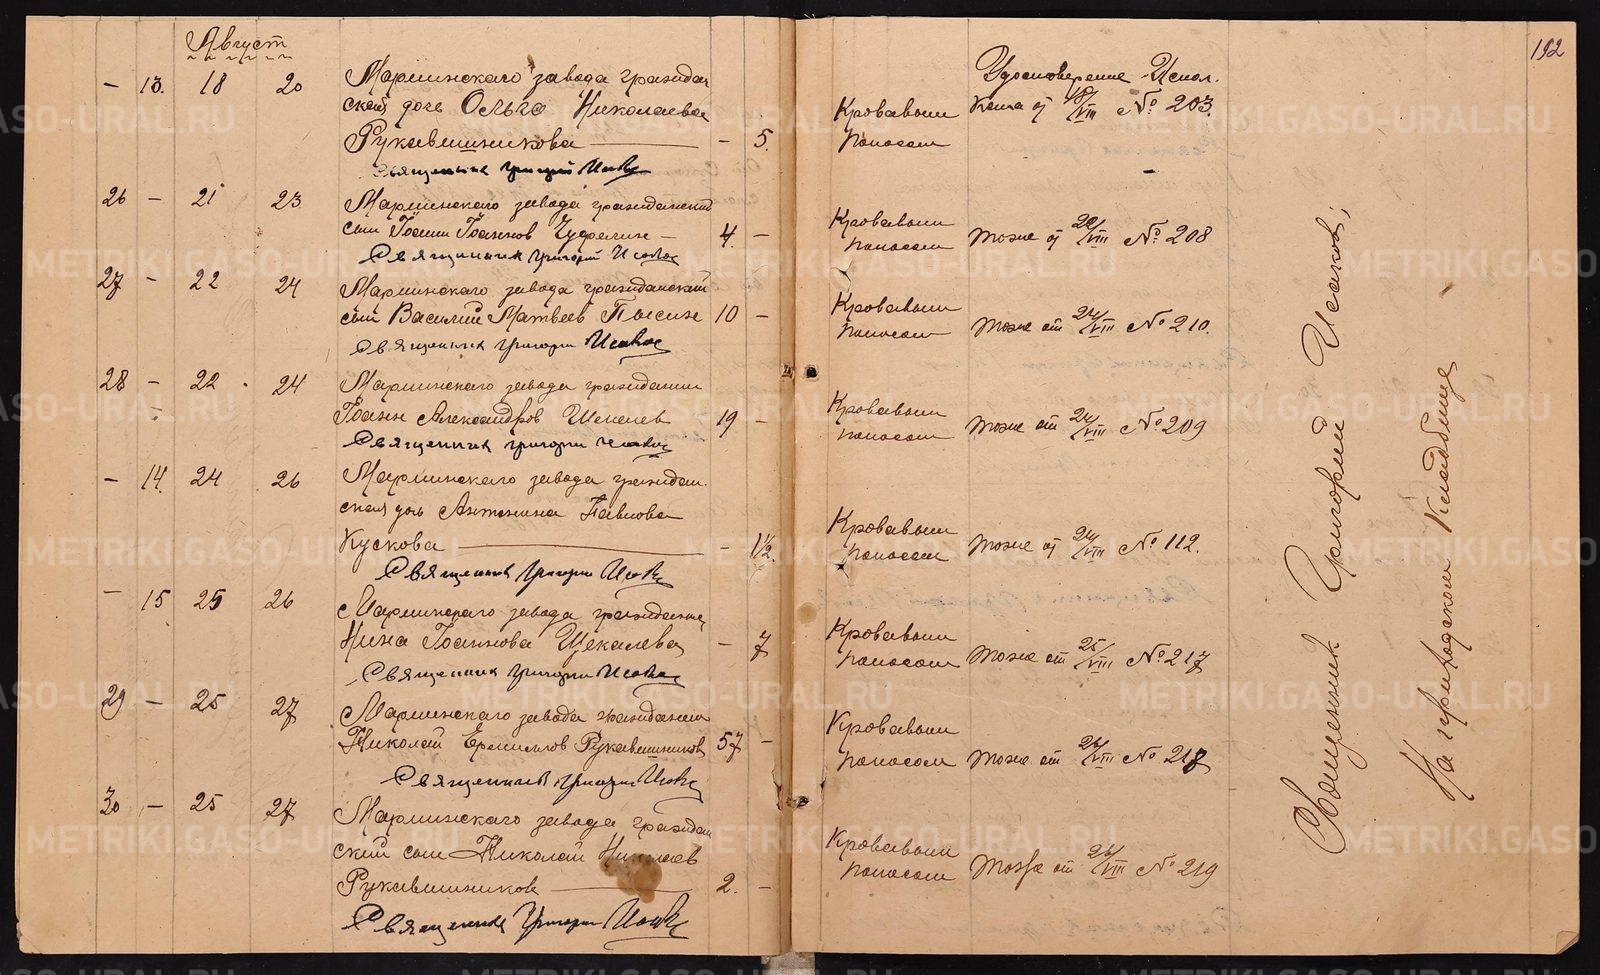 Август
192
— 13. 18 20 Мариинскаго завода граждан
ской дочь Ольга Николаева
Рукавишникова — — 5.
Священник Григорий Исаков
Кровавым поносом
Удостоверение Испол.
Кома от 18/VIII № 203.
26 — 21 23 Мариинскаго завода гражданский
сын Иоанн Иоаннов — 4. —
Священник Григорий Исаков
Кровавым поносом
тоже от 22/VIII № 208
27 — 22 24 Мариинскаго завода гражданский
сын Василий Матвеев 10 —
Священник Григорий Исаков
Кровавым поносом
тоже от 24/VIII № 210.
28 — 22 24 Мариинскаго завода гражданин
Иоанн Александров 19 —
Священник Григорий Исаков
Кровавым поносом
тоже от 24/VIII № 209
— 14. 24 26 Мариинскаго завода граждан.
ская дочь Антонина Павлова
Кускова — — 1½
Священник Григорий Исаков
Кровавым поносом
тоже от 24/VIII № 112.
— 15 25 26 Мариинскаго завода гражданка
Нина Иоаннова Щекалева — 7
Священник Григорий Исаков
Кровавым поносом
тоже от 25/VIII № 217
29 — 25 27 Мариинскаго завода гражданин
Николай Ермиллов Рукавишников 57 —
Священник Григорий Исаков
Кровавым поносом
тоже от 26/VIII № 218
30 — 25 27 Мариинскаго завода граждан
ский сын Николай Николаев
Рукавишников — 2. —
Священник Григорий Исаков
Кровавым поносом
тоже от 26/VIII № 219
Священник Григорий Исаков;
На приходском кладбище
METRIKI.GASO-URAL.RU